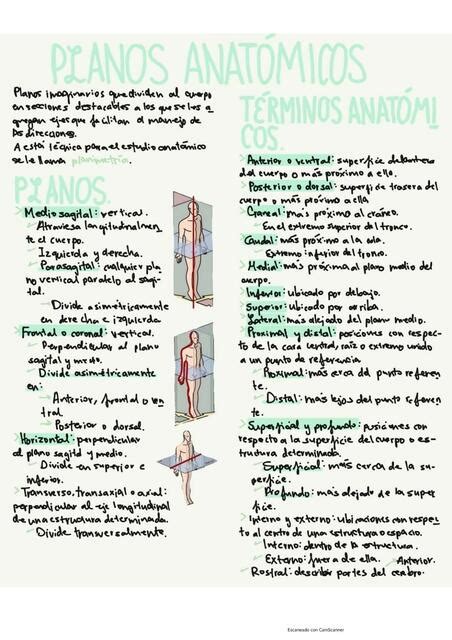 PLANOS ANATÓMICOS
Planos imaginarios que dividen al cuerpo
en secciones destacables a los que se les a
gregan ejes que facilitan el manejo de
las direcciones.
A está técnica para el estudio anatómico
se le llama planimetría.
PLANOS.
Medio sagital: vertical.
Atraviesa longitudinalmen
te el cuerpo.
Izquierda y derecha.
Parasagital: cualquier pla
no vertical paralelo al sagi-
tal.
Divide asimétricamente
en derecha e izquierda
Frontal o coronal: vertical.
Perpendicular al plano
sagital y medio.
Divide asimétricamente
en:
Anterior, frontal o ven
tral.
Posterior o dorsal.
Horizontal: perpendicular
al plano sagital y medio.
Divide en superior e
inferior.
Transverso, transaxial o axial:
perpendicular al eje longitudinal
de una estructura determinada.
Divide transversalmente.
TÉRMINOS ANATÓMI
COS.
Anterior o ventral: superficie delantera
del cuerpo o más próximo a ello.
Posterior o dorsal: superficie trasera del
cuerpo o más próximo a ella
Craneal: más próximo al cráneo.
En el extremo superior del tronco.
Caudal: más próximo a la cola.
Extremo inferior del tronco.
Medial: más próxima al plano medio del
cuerpo.
Inferior: ubicado por debajo.
Superior: ubicado por arriba.
Lateral: más alejado del plano medio.
Proximal y distal: posiciones con respec-
to de la cara central, raíz o extremo unido
a un punto de referencia.
Proximal: más cerca del punto referen
te.
Distal: más lejos del punto referen
te.
Superficial y profundo: posiciones con
respecto a la superficie del cuerpo o es-
trutura determinada.
Superficial: más cerca de la su-
perficie.
Profundo: más alejado de la super
ficie.
Interno y externo: ubicaciones con respec-
to al centro de una estructura o espacio.
Interno: dentro de la estructura.
Externo: fuera de ella.
Anterior.
Rostral: describir partes del cerebro.
Escaneado con CamScanner